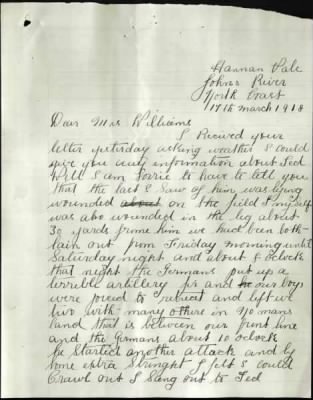 Hannan Vale
Johns River
North Coast
17th March 1918
Dear Mrs Williams
I Recived your
letter yesterday asking weather I could
give you any information about Ted
Well I am Sorrie to have to tell you
that the last I Saw of him was lying
wounded about on the field I myself
was also wounded in the leg about
30 yards frome him we had been both
lain out from Friday morning untill
Saturday night and about 8 oclock
that night the Germans put up a
terrible artillery fir and our boys
were forced to retreat and left us
two with many others in No mans
land that is between our front line
and the Germans about 10 oclock
he Started another attack and by
some extra Strenght I felt I could
Crawl out I Sang out to Ted